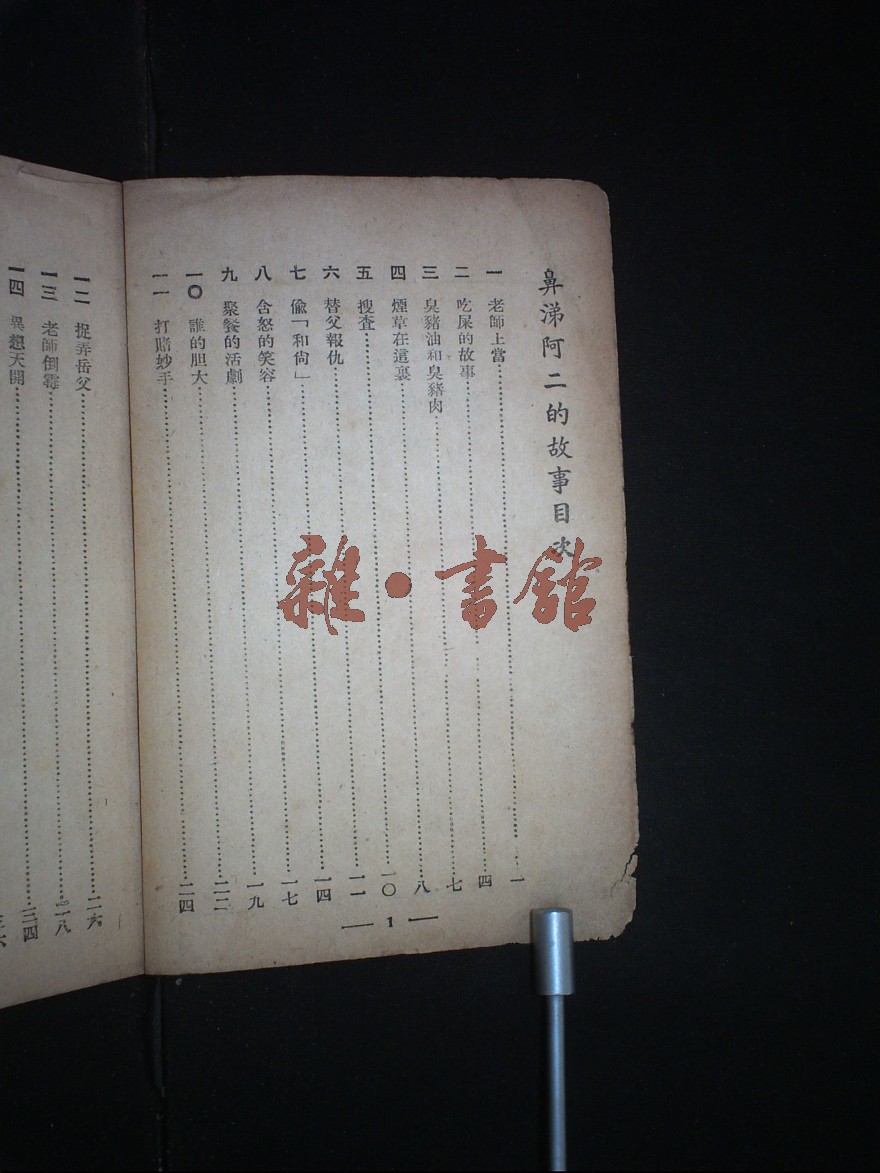 鼻涕阿二的故事目次
一 老師上當……一
二 吃屎的故事……四
三 臭豬油和臭豬肉……七
四 煙草在這裏……八
五 搜査……一〇
六 替父報仇……一一
七 偸「和尙」……一四
八 含怒的笑容……一七
九 聚餐的活劇……一九
一〇 誰的胆大……二二
一一 打賭妙手……二四
— 1 —
一二 捉弄岳父……二六
一三 老師倒霉……二八
一四 異想天開……三四
雜·書館